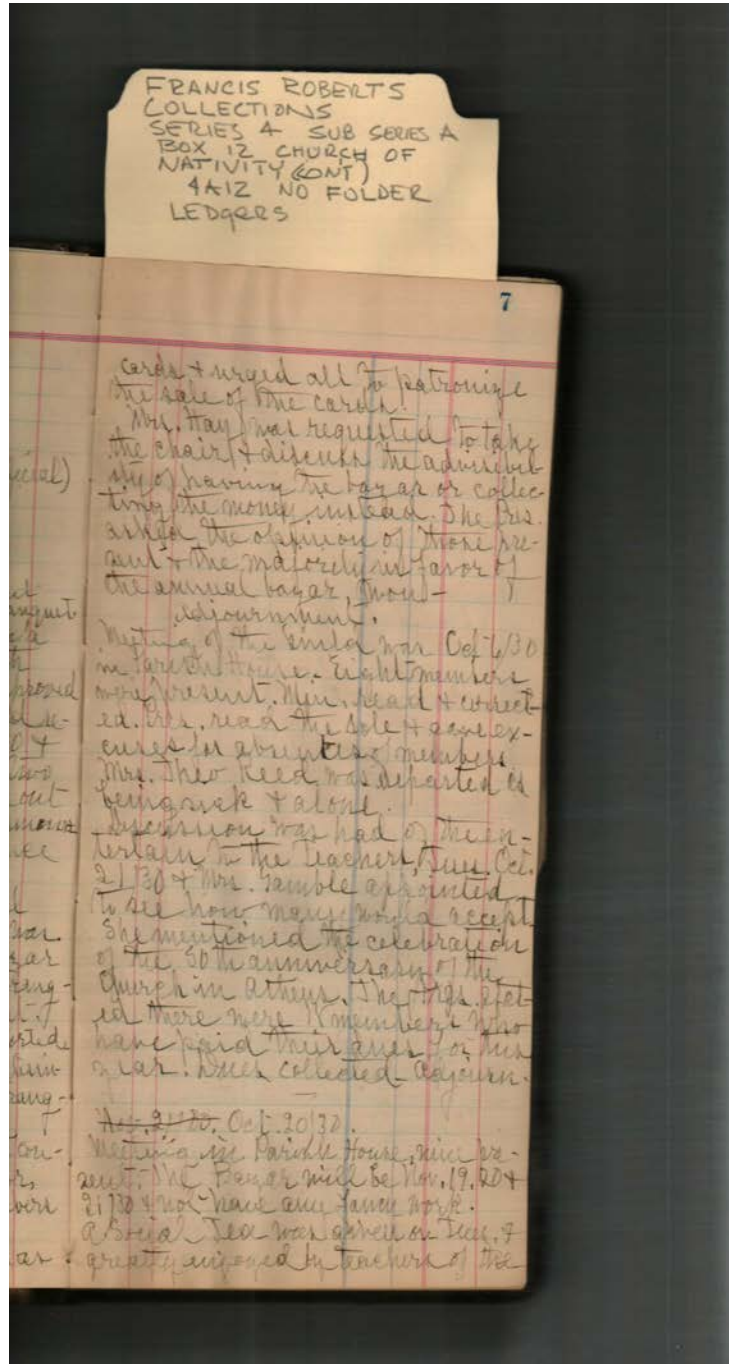 FRANCIS ROBERTS
COLLECTIONS
SERIES 4 SUB SERIES A
BOX 12 CHURCH OF
NATIVITY (CONT)
4A12 NO FOLDER
LEDGERS
7
cards + urged all to patronize
the sale of the cards.
Mrs. Hay was requested to take
the chair + discuss the advisibil-
ity of having the bazar or collec-
ting the money instead. The Pres.
asked the opinion of those pre-
sent + the majority in favor of
the annual bazar,
Adjournment.
Meeting of the was Oct 6/30
in Parish House. Eight members
were present. Min. read + correct-
ed. Pres. read the + gave ex-
cuses for absentees members.
Mrs. Theo. Reed was reported as
being sick + alone.
Discussion was had of the en-
tertain to the Teachers, Tues. Oct.
21/30 + Mrs. Gamble appointed
to see how many would accept.
She mentioned the celebration
of the 50th anniversary of the
Church in Athens. The Trgs. stat-
ed there were members who
have paid their dues for this
year. Dues collected - Adjourn.
Nov. 21/30. Oct. 20/30.
Meeting in Parish House, nine pre-
sent. The Bazar will be Nov. 19, 20 +
21/30 + not have any fancy work.
A Social Tea was given on Tues. +
greatly enjoyed by teachers of the
ecial)
anquet
proved
two
out
ar
ring-
orted
con-
as